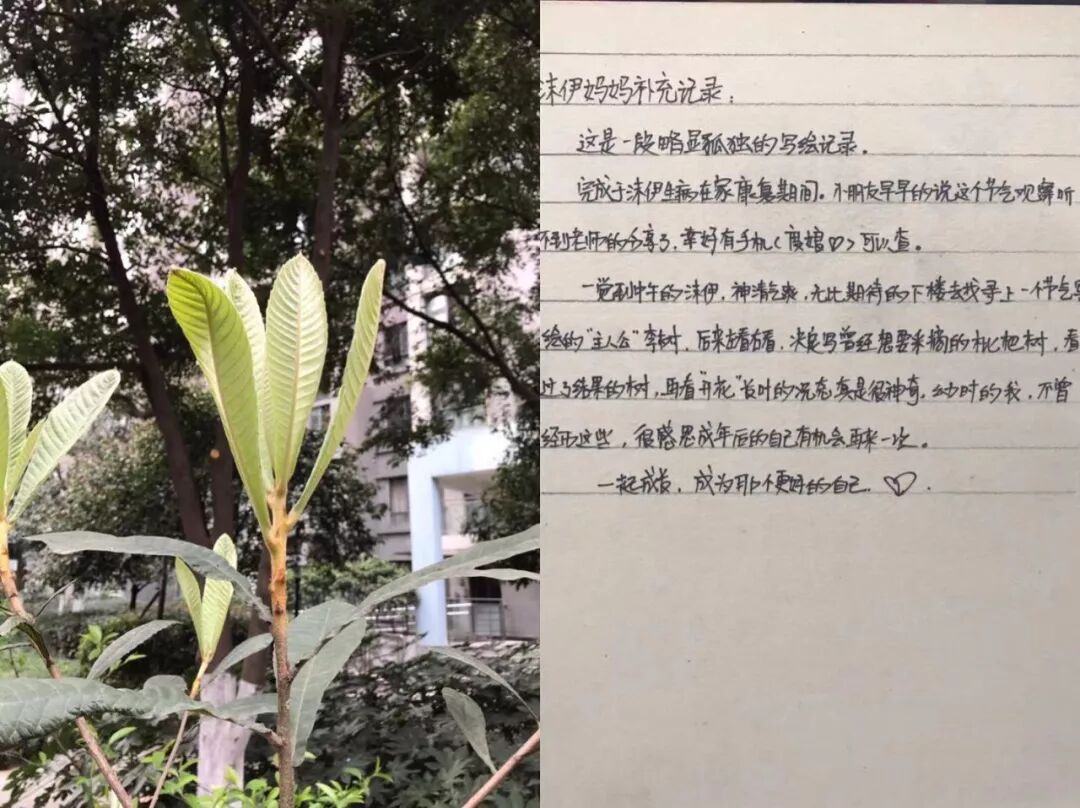 沫伊妈妈补充记录：
这是一段略显孤独的写绘记录。
完成于沫伊生病在家康复期间。小朋友早早的说这个节气观察听
不到老师的分享了，幸好有手机（度娘♡）可以查。
一觉到中午的沫伊，神清气爽，无比期待的下楼去找寻上一节气写
绘的“主人公”李树，后来左看右看，决定写曾经想要采摘的枇杷树，看
过了结果的树，再看“开花”长叶的况充真是很神奇。幼时的我，不曾
经历这些，很感恩成年后的自己有机会再来一次。
一起成长，成为那个更好的自己。♡.